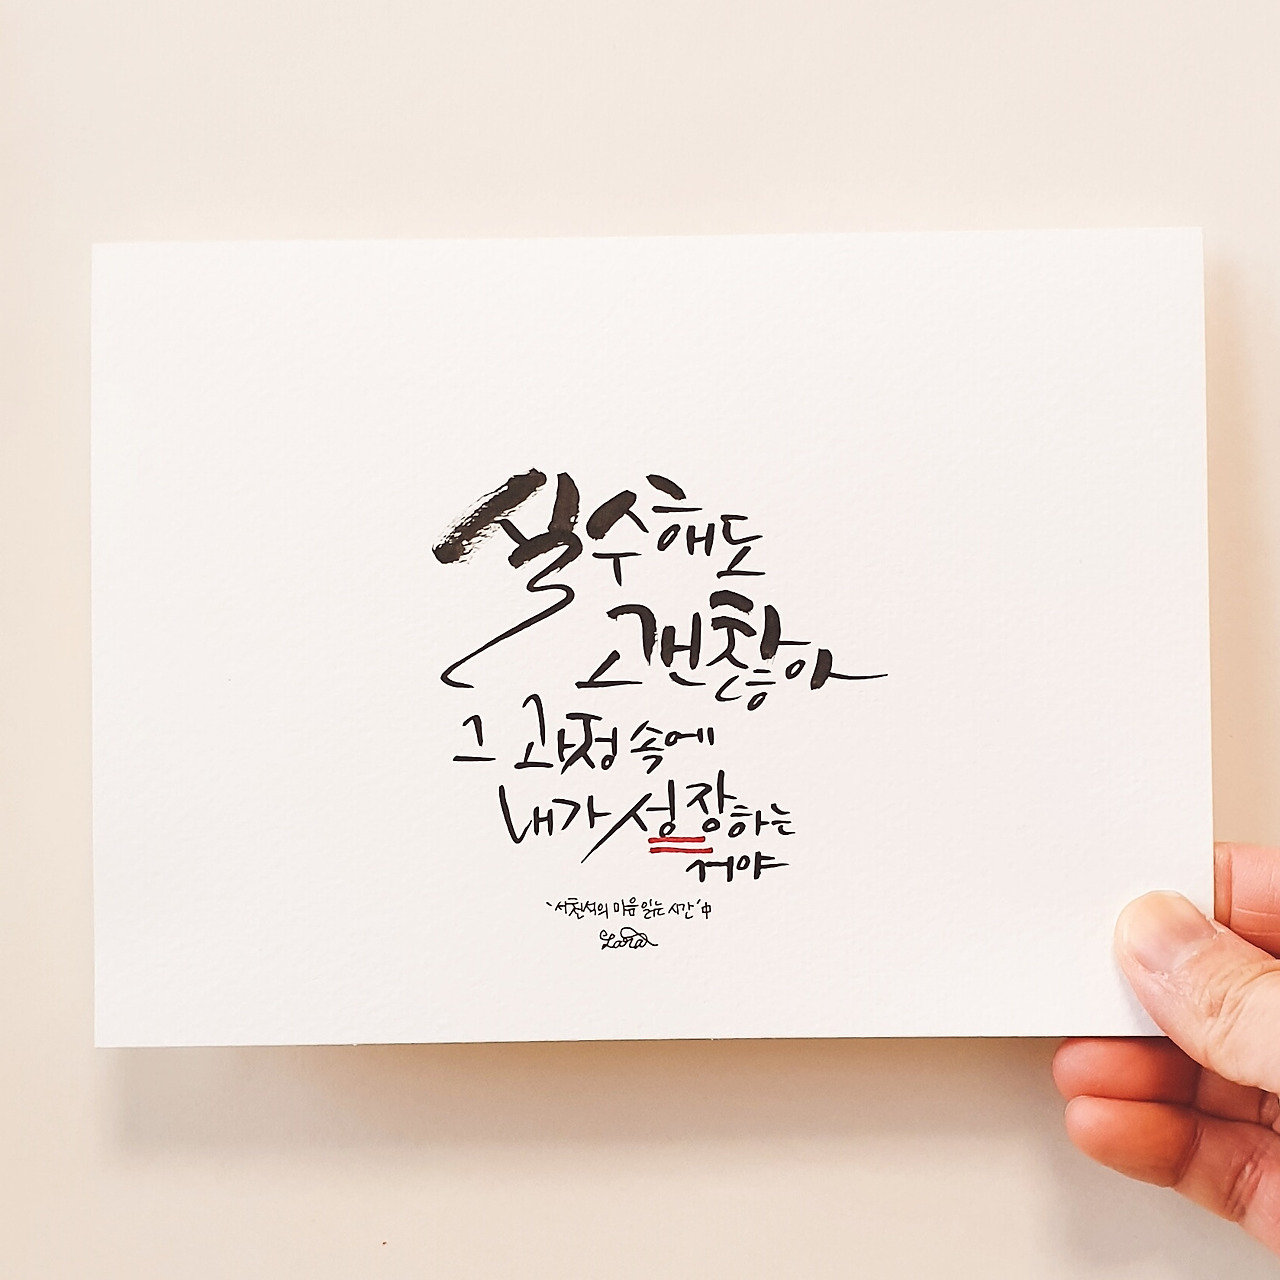 실수해도
괜찮아
그 과정 속에
내가 성장하는
거야
'서천석의 마음 읽는 시간' 中
Lara